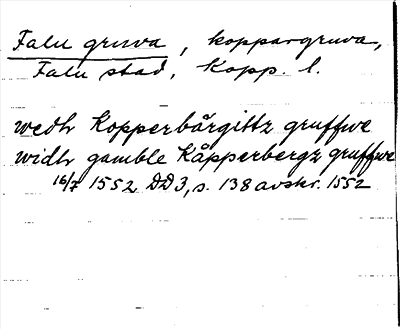 Falu gruva, koppargruva,
Falu stad, Kopp. l.
wedh Kopperbårgittz gruffwe
widh gamble Kåpperbergz gruffwe
16/7 1552 DD3, s. 138 avskr. 1552